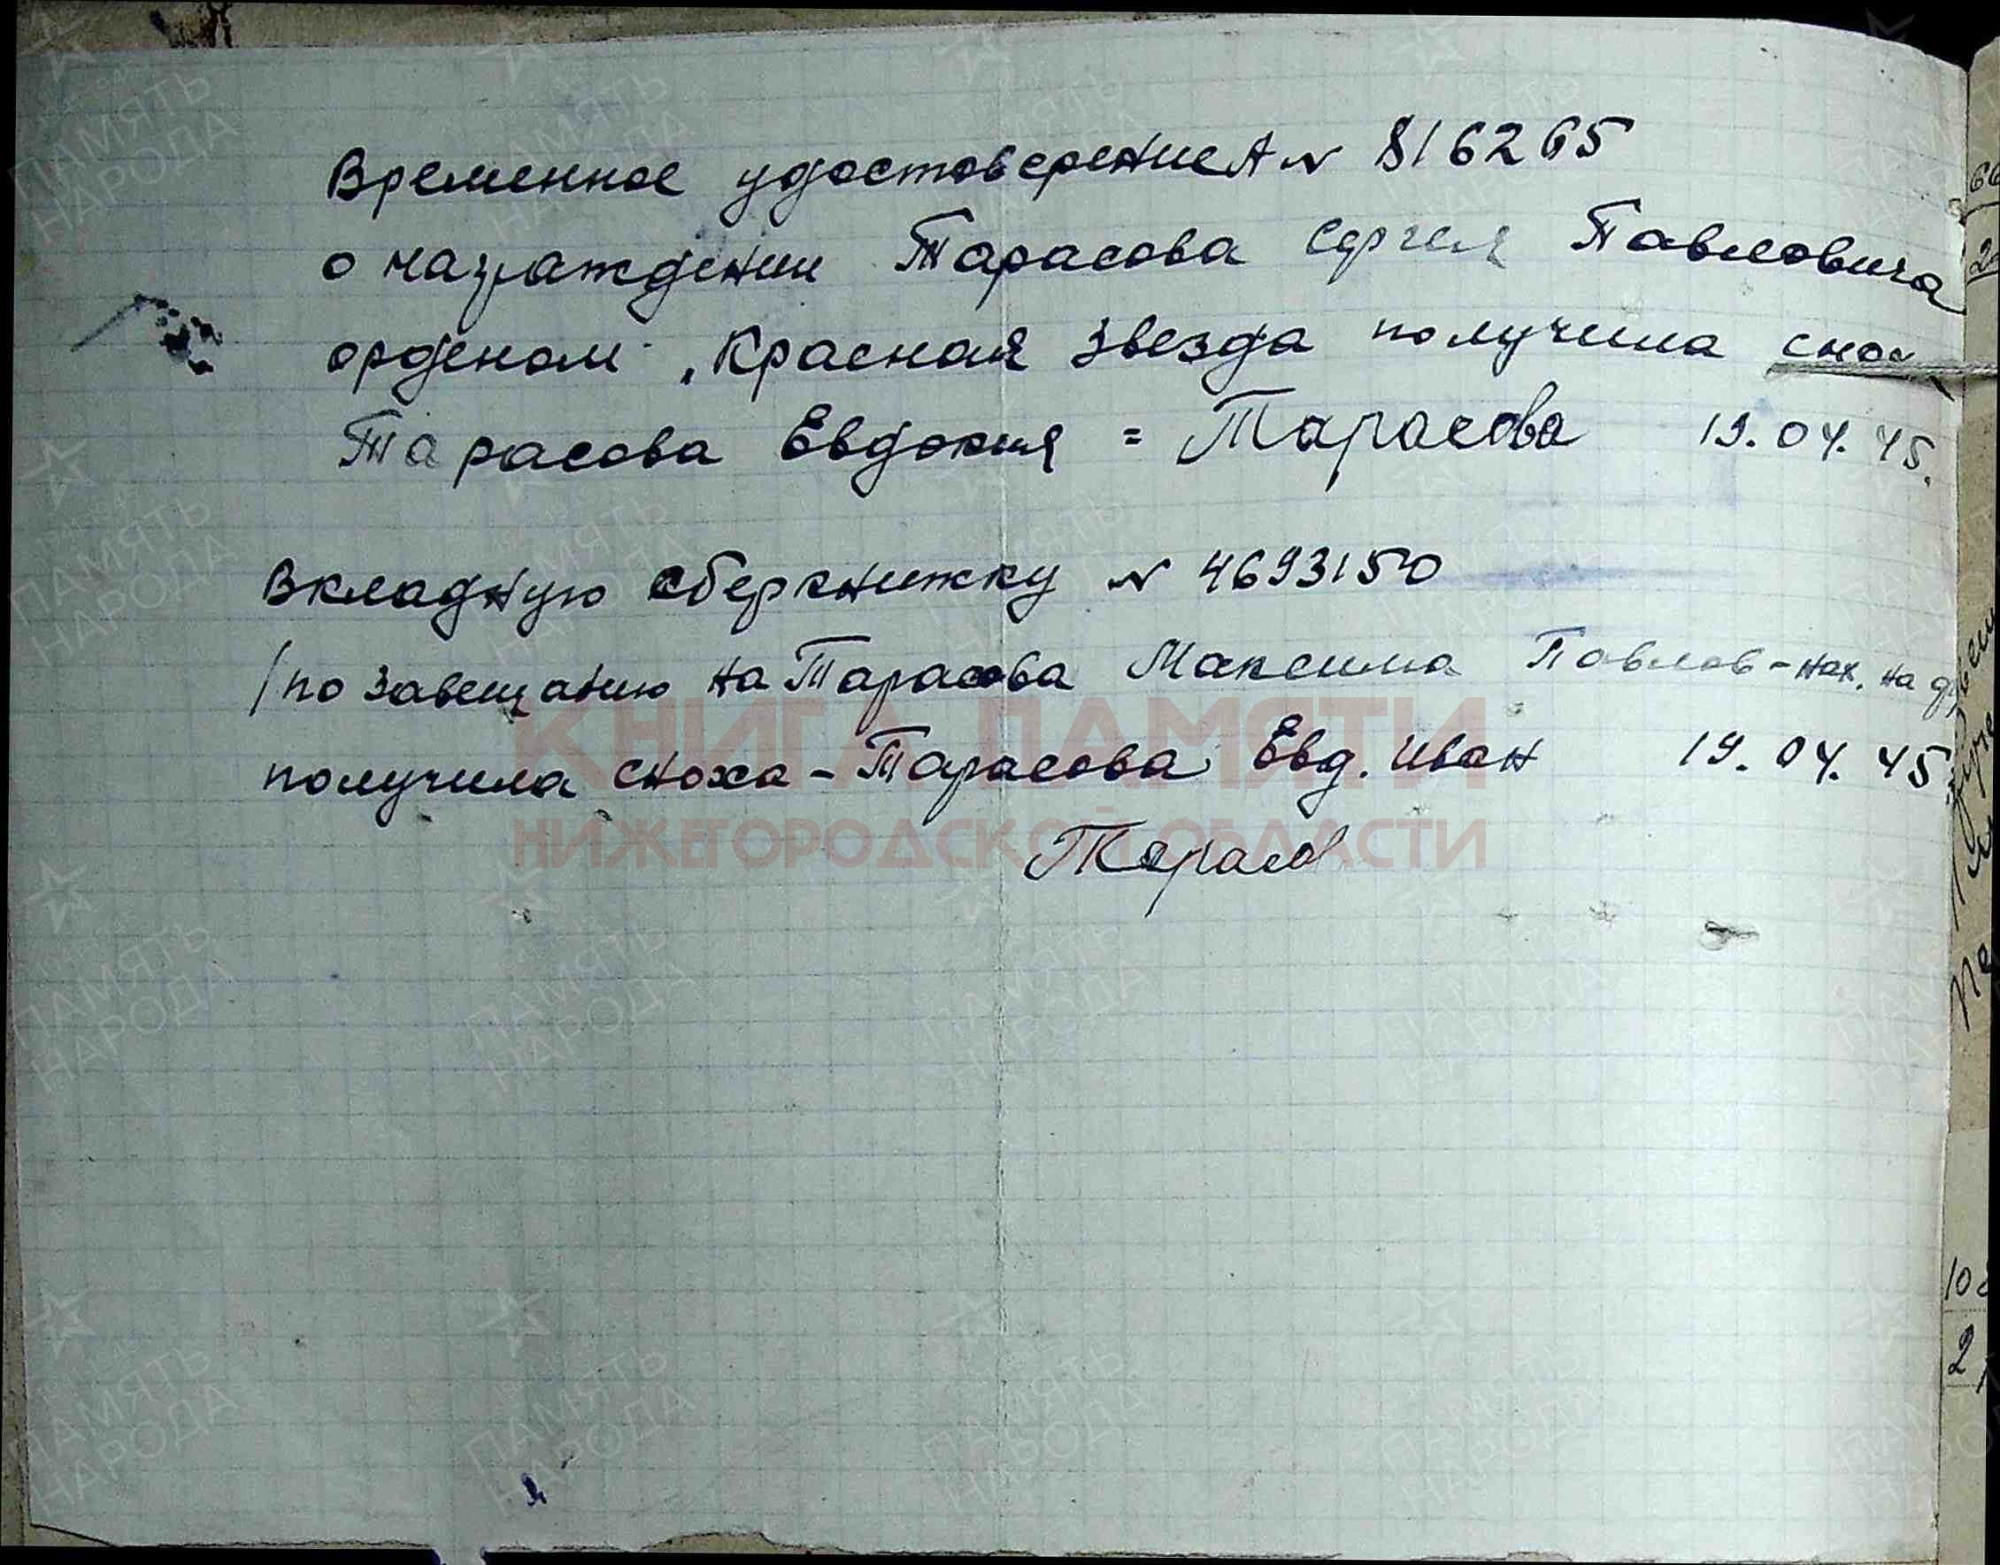 Временное удостоверение А N 816265
о награждении Тарасова Сергея Павловича
орденом „Красная Звезда получила сноха
Тарасова Евдокия = Тарасова 19.04.45.
Вкладную сберкнижку N 4693150
/по завещанию на Тарасова Максима Павлов - нах. на
КНИГА ПАМЯТИ
получила сноха - Тарасова Евд. Иван 19.04.45
НИЖЕГОРОДСКОЙ ОБЛАСТИ
Тарасов
ПАМЯТЬ НАРОДА